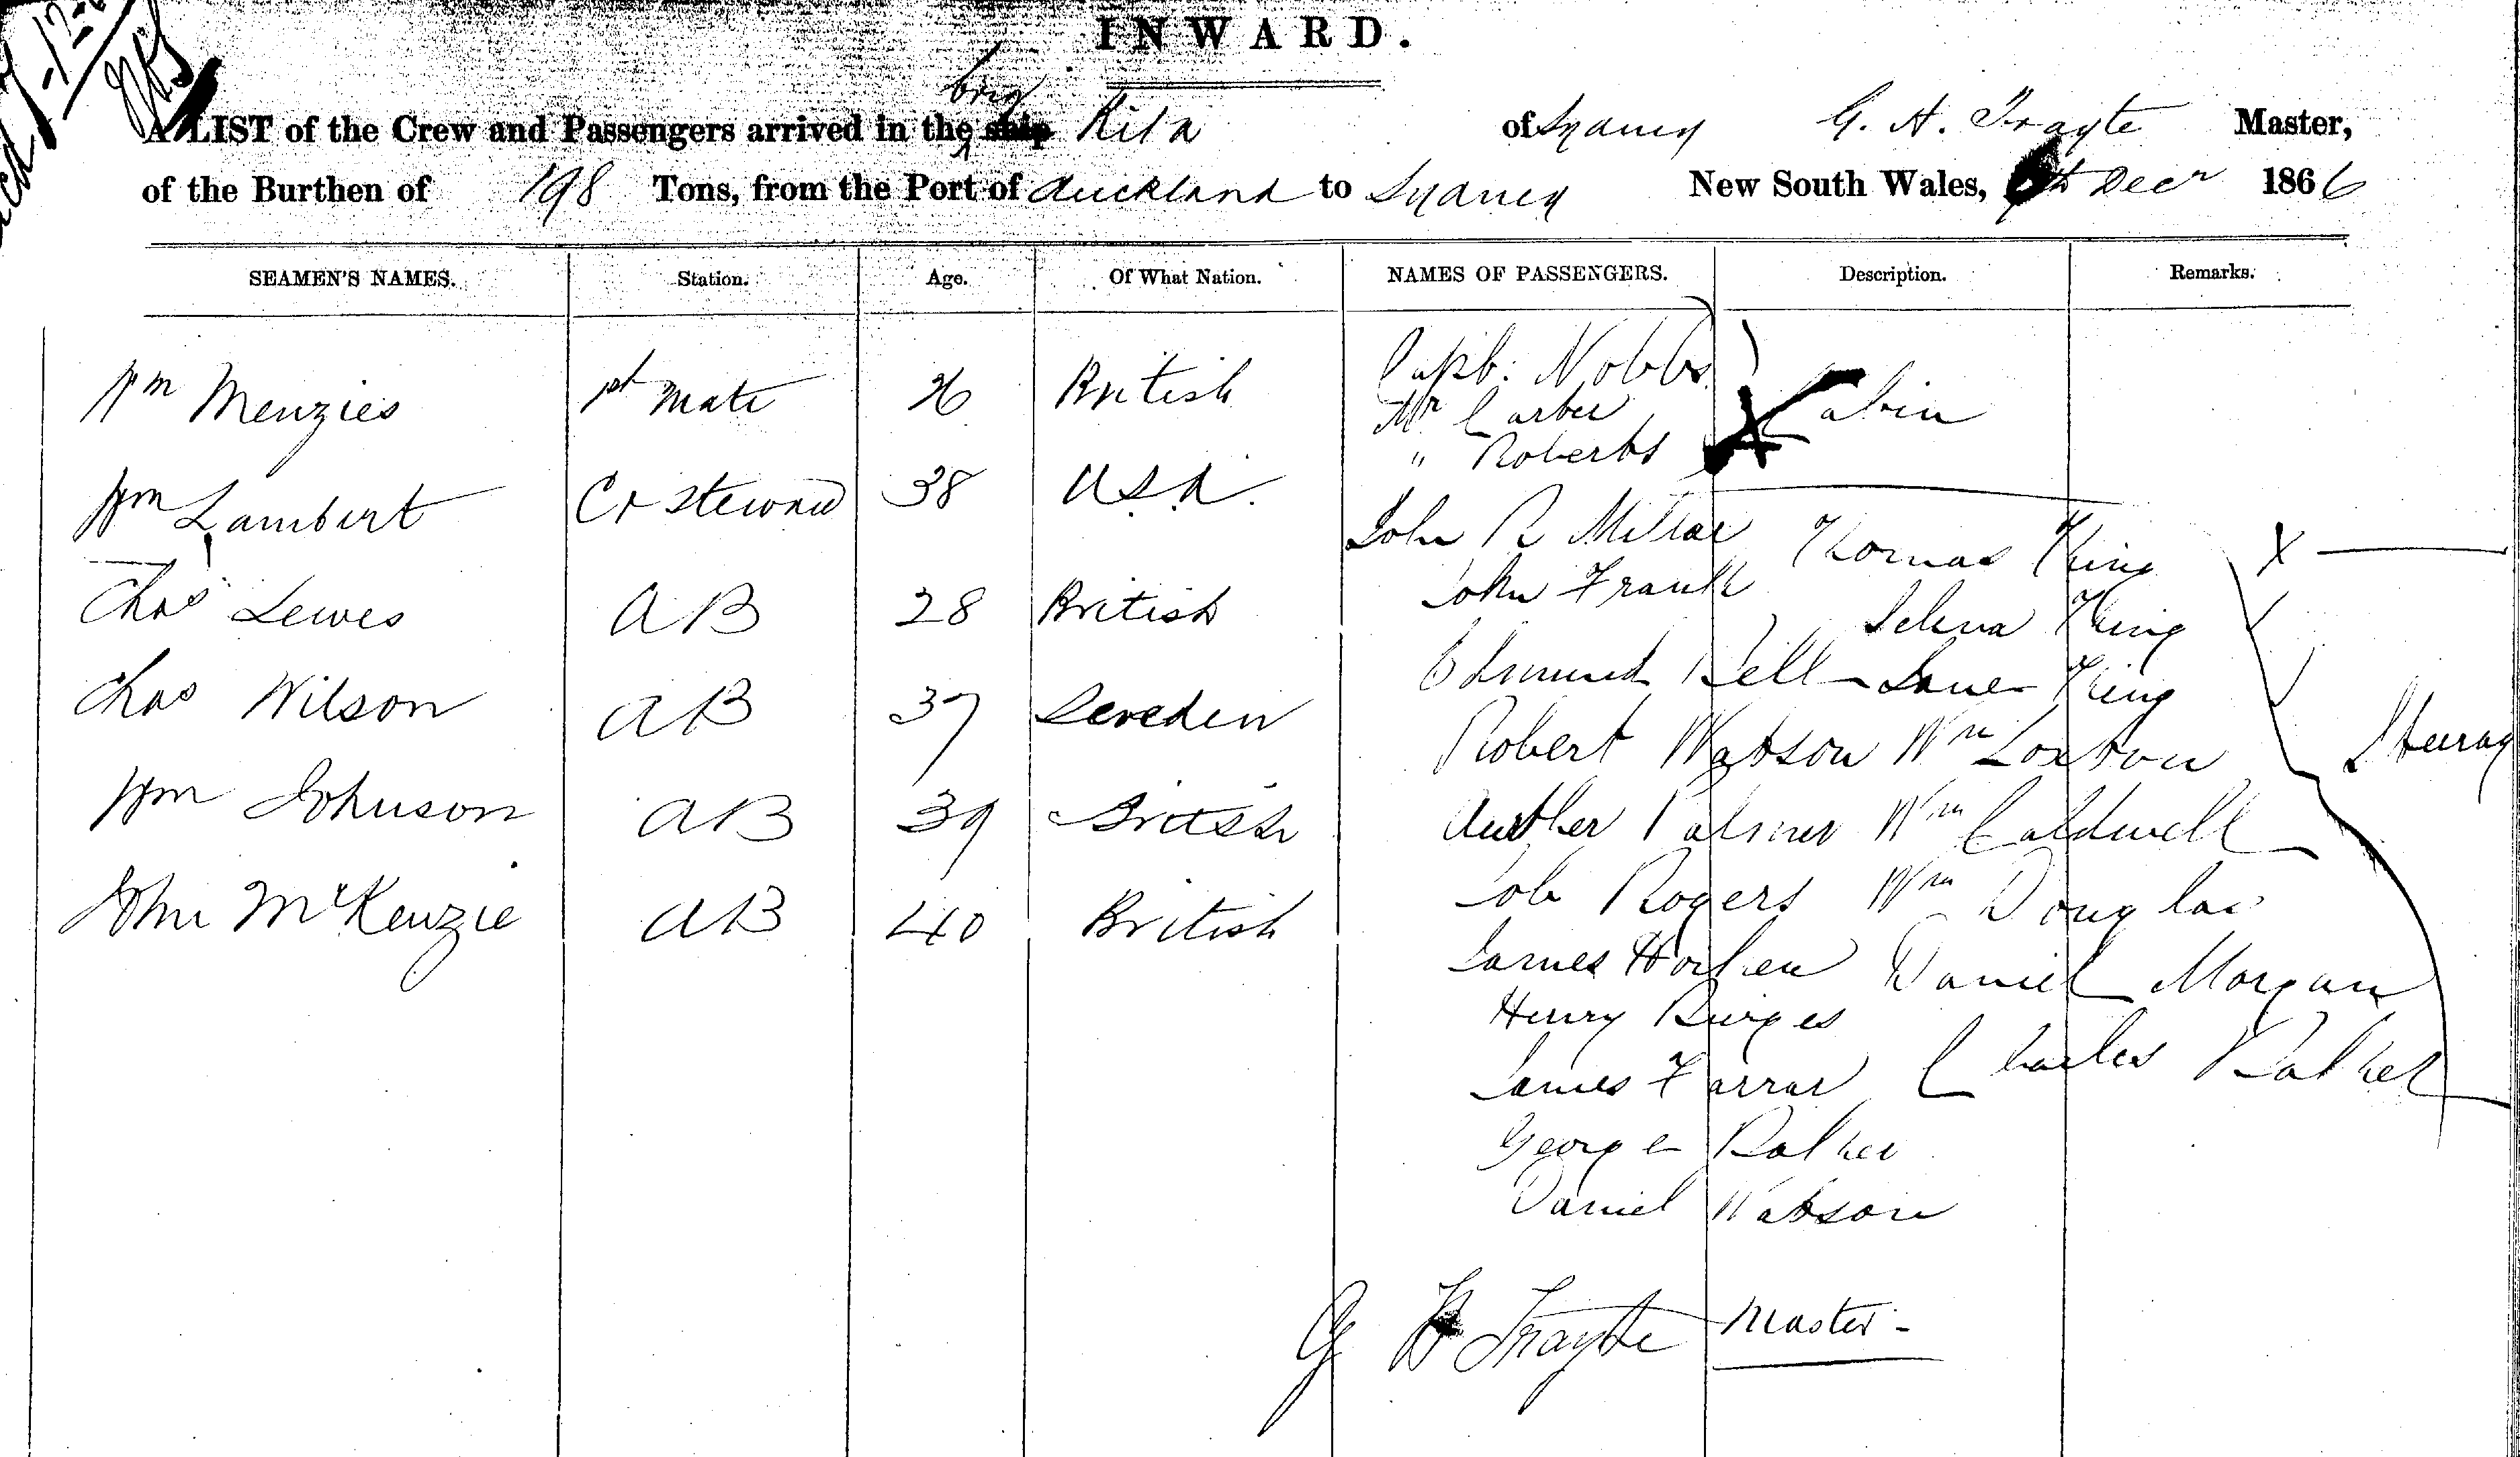 INWARD.
brig
A LIST of the Crew and Passengers arrived in the ship Rita of Sydney G. H. Trayte Master,
of the Burthen of 198 Tons, from the Port of Auckland to Sydney New South Wales, Decr 1866
SEAMEN'S NAMES. Station. Age. Of What Nation. NAMES OF PASSENGERS. Description. Remarks.
Capt. Nobbs
Wm Menzies 1st Mate 26 British Mr Carter Cabin
" Roberts
Wm Lambert Cr Steward 38 U.S.A.
John R Millar Thomas King X
Chas Lewes AB 28 British John Frank Selena King
Edmund Bell Jane King
Chas Wilson AB 37 Sweden Robert Watson Wm Loxton Steerag
Wm Johnson AB 39 British Auther Palmer Wm Caldwell
Job Rogers Wm Douglas
John McKenzie AB 40 British James Daniel Morgan
Henry Burges
James Farrar Charles Balher
George Balher
Daniel Watson
G H Trayte Master